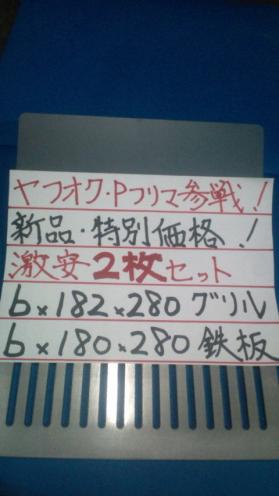 ヤフオク・Pフリマ参戦!
新品・特別価格!
激安-2枚セット
6×182×280グリル
6×180×280鉄板